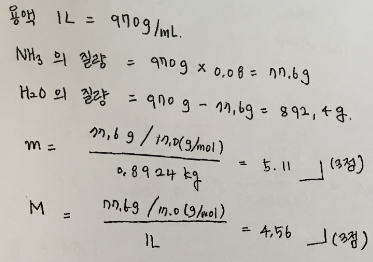 용액 1L = 970g/mL.
NH3 의 질량 = 970g × 0.08 = 77.6g
H2O 의 질량 = 970g - 77.6g = 892.4g.
m = 77.6 g / 17.0(g/mol) / 0.8924 kg = 5.11 (3점)
M = 77.6g / 17.0 (g/mol) / 1L = 4.56 (3점)